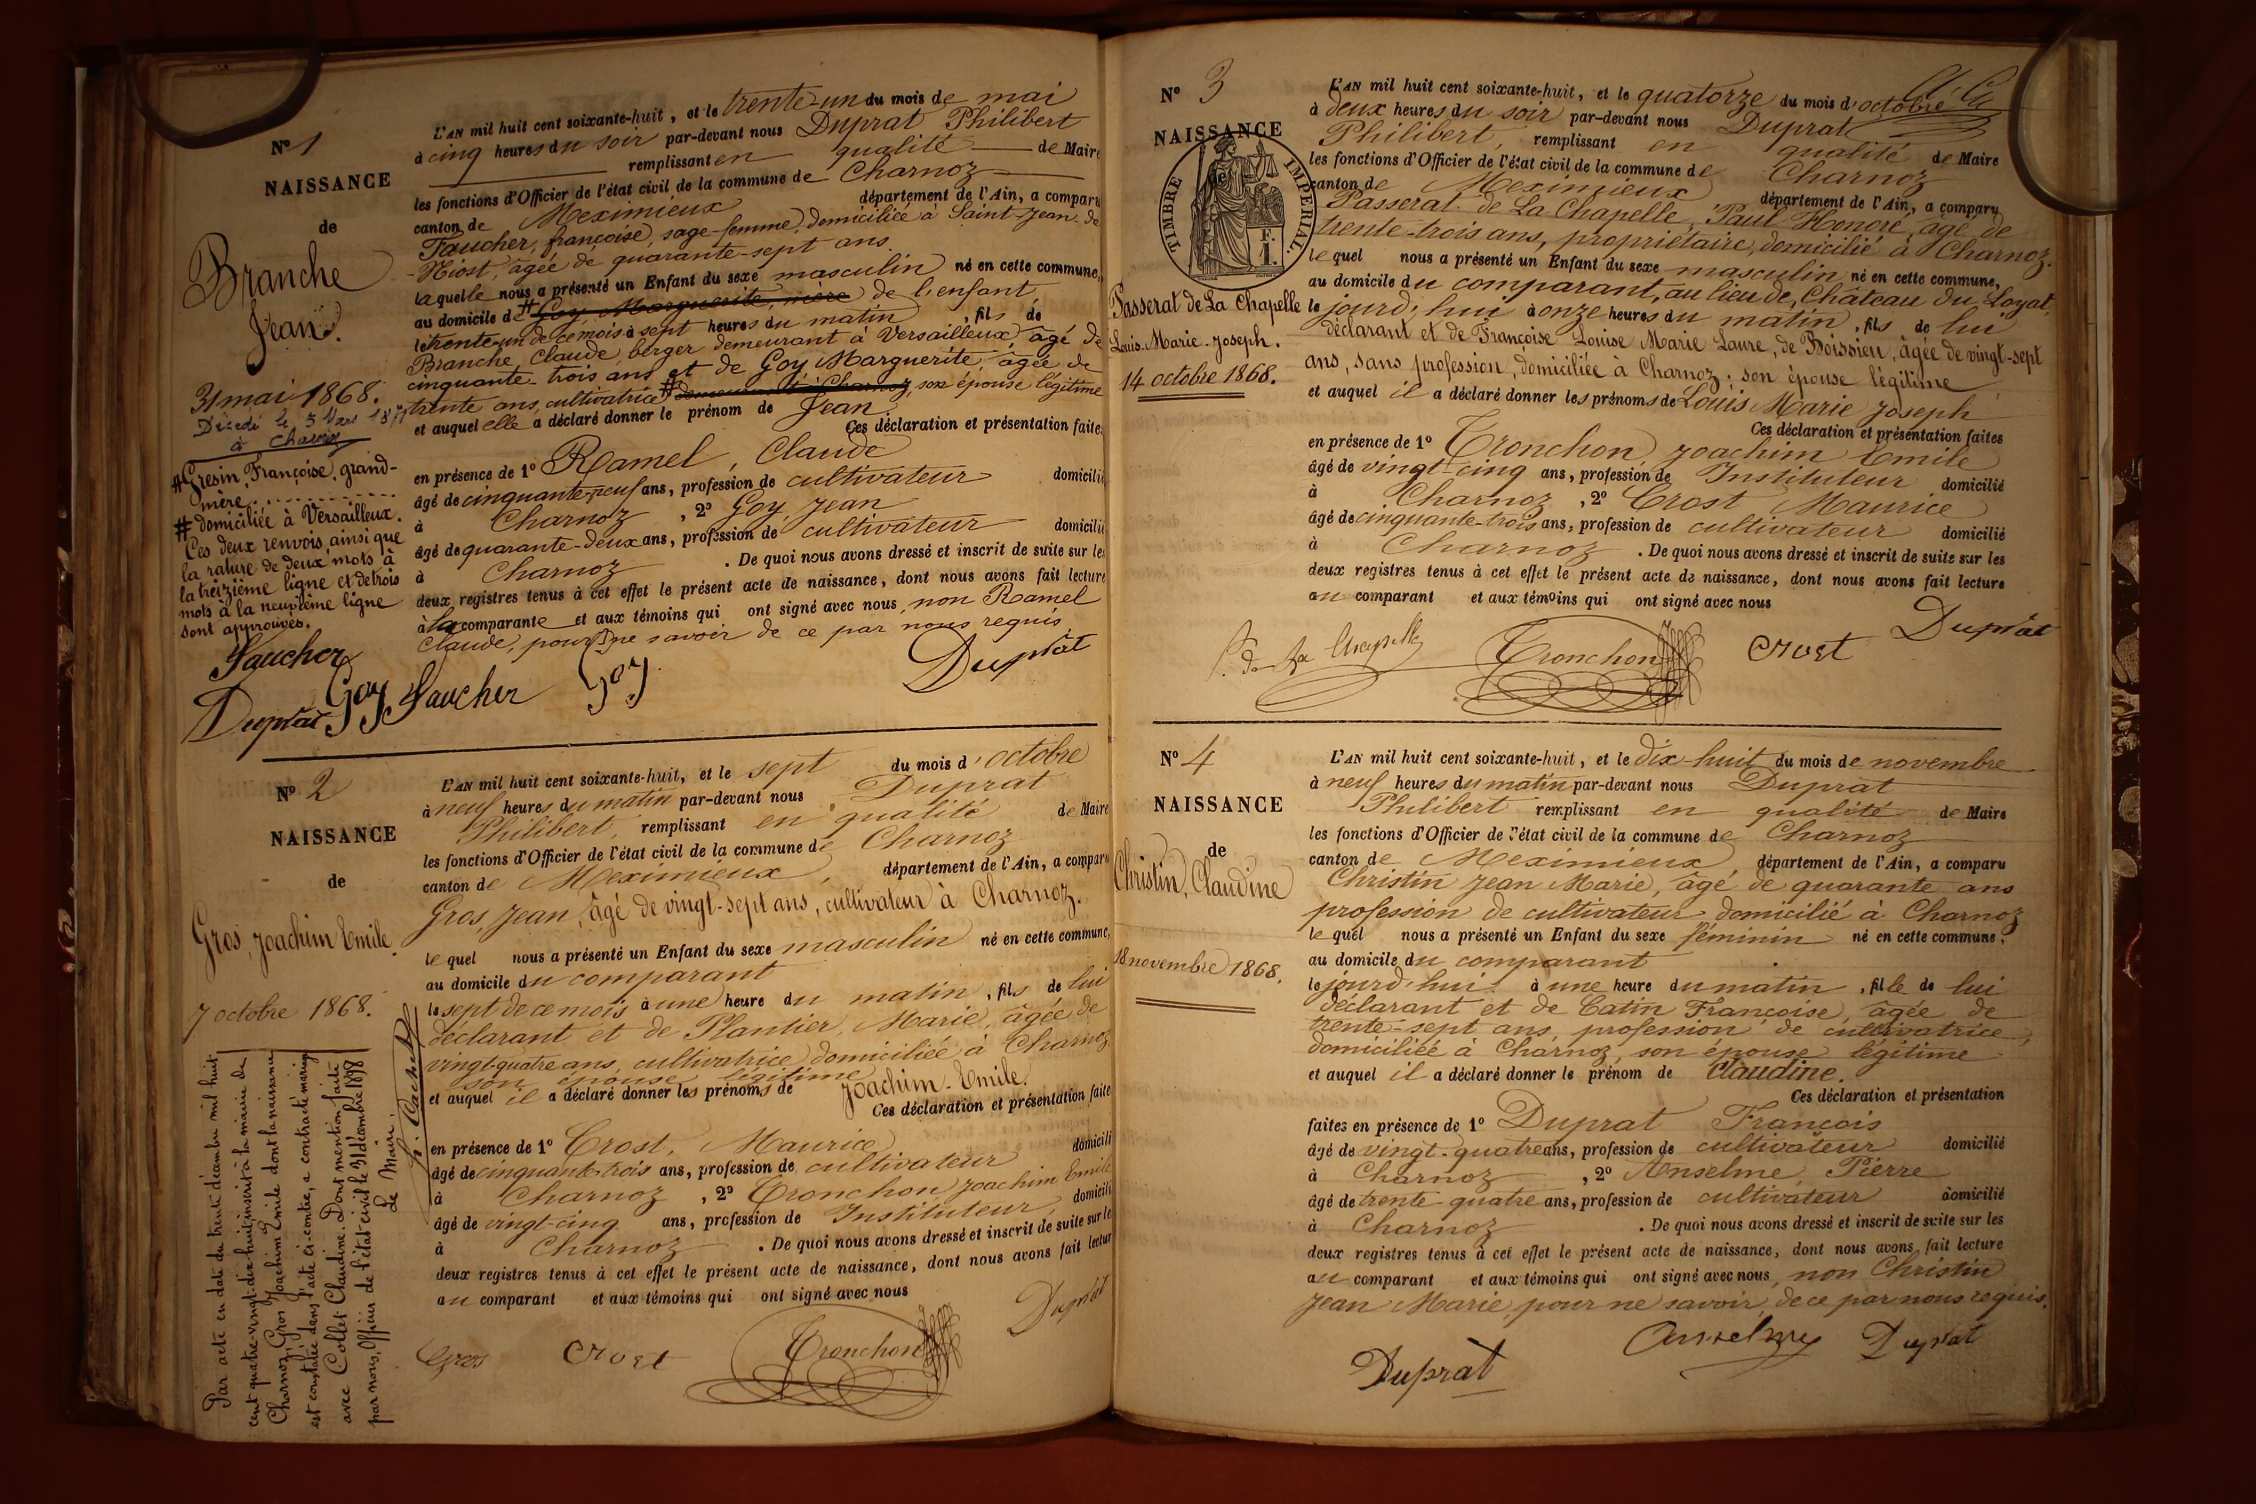 Nº 1
NAISSANCE
de
Branche
Jean.
31 mai 1868.
Décédé le 5 Mars
à
# Gresin, Françoise, grand-
mère
# domiciliée à Versailleux.
Ces deux renvois, ainsi que
la rature de deux mots à
la treizième ligne et de trois
mots à la neuvième ligne
sont approuvés.
Faucher
Duprat Goy Faucher Goy Duprat
L'AN mil huit cent soixante-huit, et le trente-un du mois de mai
à cinq heures du soir par-devant nous Duprat Philibert
remplissant en qualité de Maire
les fonctions d'Officier de l'état civil de la commune de Charnoz
canton de Meximieux département de l'Ain, a comparu
Faucher, françoise, sage-femme, domiciliée à Saint-Jean de
Niost, âgée de quarante-sept ans.
laquelle nous a présenté un Enfant du sexe masculin né en cette commune,
au domicile de # Goy Marguerite, mère de l'enfant
le trente-un de ce mois à sept heures du matin, fils de
Branche, Claude berger demeurant à Versailleux, âgé de
cinquante-trois ans et de Goy Marguerite, âgée de
trente ans, cultivatrice # demeurant à Charnoz, son épouse légitime
et auquel elle a déclaré donner le prénom de Jean.
Ces déclaration et présentation faites
en présence de 1º Ramel, Claude
âgé de cinquante-neuf ans, profession de cultivateur domicilié
à Charnoz, 2º Goy, Jean
âgé de quarante-deux ans, profession de cultivateur domicilié
à Charnoz. De quoi nous avons dressé et inscrit de suite sur les
deux registres tenus à cet effet le présent acte de naissance, dont nous avons fait lecture
à la comparante et aux témoins qui ont signé avec nous, non Ramel
Claude, pour ne savoir de ce par nous requis
Nº 2
NAISSANCE
de
Gros, Joachim Emile.
7 octobre 1868.
Par acte en date du trente décembre mil huit
cent quatre-vingt-dix-huit, inscrit à la mairie de
Charnoz, Gros Joachim Emile dont la naissance
est constatée dans l'acte ci-contre, a contracté mariage
avec Collet Claudine. Dont mention faite
par nous, Officier de l'état-civil le 31 décembre 1898
Le Maire
L'AN mil huit cent soixante-huit, et le sept du mois d'octobre
à neuf heures du matin par-devant nous Duprat
Philibert, remplissant en qualité de Maire
les fonctions d'Officier de l'état civil de la commune de Charnoz
canton de Meximieux, département de l'Ain, a comparu
Gros, Jean, âgé de vingt-sept ans, cultivateur à Charnoz.
le quel nous a présenté un Enfant du sexe masculin né en cette commune,
au domicile du comparant
le sept de ce mois à une heure du matin, fils de lui
déclarant et de Plantier, Marie, âgée de
vingt-quatre ans, cultivatrice domiciliée à Charnoz
son épouse légitime
et auquel il a déclaré donner les prénoms de Joachim-Emile.
Ces déclaration et présentation faite
en présence de 1º Crost, Maurice domicili
âgé de cinquante-trois ans, profession de cultivateur
à Charnoz, 2º Tronchon, Joachim Emile
âgé de vingt-cinq ans, profession de Instituteur, domicili
à Charnoz. De quoi nous avons dressé et inscrit de suite sur le
deux registres tenus à cet effet le présent acte de naissance, dont nous avons fait lectur
au comparant et aux témoins qui ont signé avec nous
Gros Crost Tronchon Duprat
Nº 3
NAISSANCE
TIMBRE IMPÉRIAL.
F.
1.
Passerat de La Chapelle
Louis-Marie-Joseph.
14 octobre 1868.
L'AN mil huit cent soixante-huit, et le quatorze du mois d'octobre
à deux heures du soir par-devant nous Duprat
Philibert, remplissant en qualité de Maire
les fonctions d'Officier de l'état civil de la commune de Charnoz
canton de Meximieux département de l'Ain, a comparu
Passerat de La Chapelle, Paul Honoré, âgé de
trente-trois ans, propriétaire, domicilié à Charnoz.
le quel nous a présenté un Enfant du sexe masculin né en cette commune,
au domicile du comparant, au lieu de, Château du Loyat,
le jourd'hui à onze heures du matin, fils de lui
déclarant et de Françoise Louise Marie Laure, de Boissieu, âgée de vingt-sept
ans, sans profession, domiciliée à Charnoz, son épouse légitime
et auquel il a déclaré donner les prénoms de Louis Marie Joseph
Ces déclaration et présentation faites
en présence de 1º Tronchon, Joachim Emile
âgé de vingt-cinq ans, profession de Instituteur domicilié
à Charnoz, 2º Crost Maurice
âgé de cinquante-trois ans, profession de cultivateur domicilié
à Charnoz. De quoi nous avons dressé et inscrit de suite sur les
deux registres tenus à cet effet le présent acte de naissance, dont nous avons fait lecture
au comparant et aux témoins qui ont signé avec nous
P. de La Chapelle Tronchon Crost Duprat
Nº 4
NAISSANCE
de
Christin, Claudine
18 novembre 1868.
L'AN mil huit cent soixante-huit, et le dix-huit du mois de novembre
à neuf heures du matin par-devant nous Duprat
Philibert remplissant en qualité de Maire
les fonctions d'Officier de l'état civil de la commune de Charnoz
canton de Meximieux, département de l'Ain, a comparu
Christin Jean Marie, âgé de quarante ans
profession de cultivateur domicilié à Charnoz
le quel nous a présenté un Enfant du sexe féminin né en cette commune,
au domicile du comparant
le jourd'hui à une heure du matin, fille de lui
déclarant et de Catin Françoise, âgée de
trente-sept ans, profession de cultivatrice,
domiciliée à Charnoz, son épouse légitime
et auquel il a déclaré donner le prénom de Claudine.
Ces déclaration et présentation
faites en présence de 1º Duprat François
âgé de vingt-quatre ans, profession de cultivateur domicilié
à Charnoz, 2º Anselme, Pierre
âgé de trente-quatre ans, profession de cultivateur domicilié
à Charnoz. De quoi nous avons dressé et inscrit de suite sur les
deux registres tenus à cet effet le présent acte de naissance, dont nous avons fait lecture
au comparant et aux témoins qui ont signé avec nous, non Christin
Jean Marie, pour ne savoir, de ce par nous requis.
Duprat Anselme Duprat